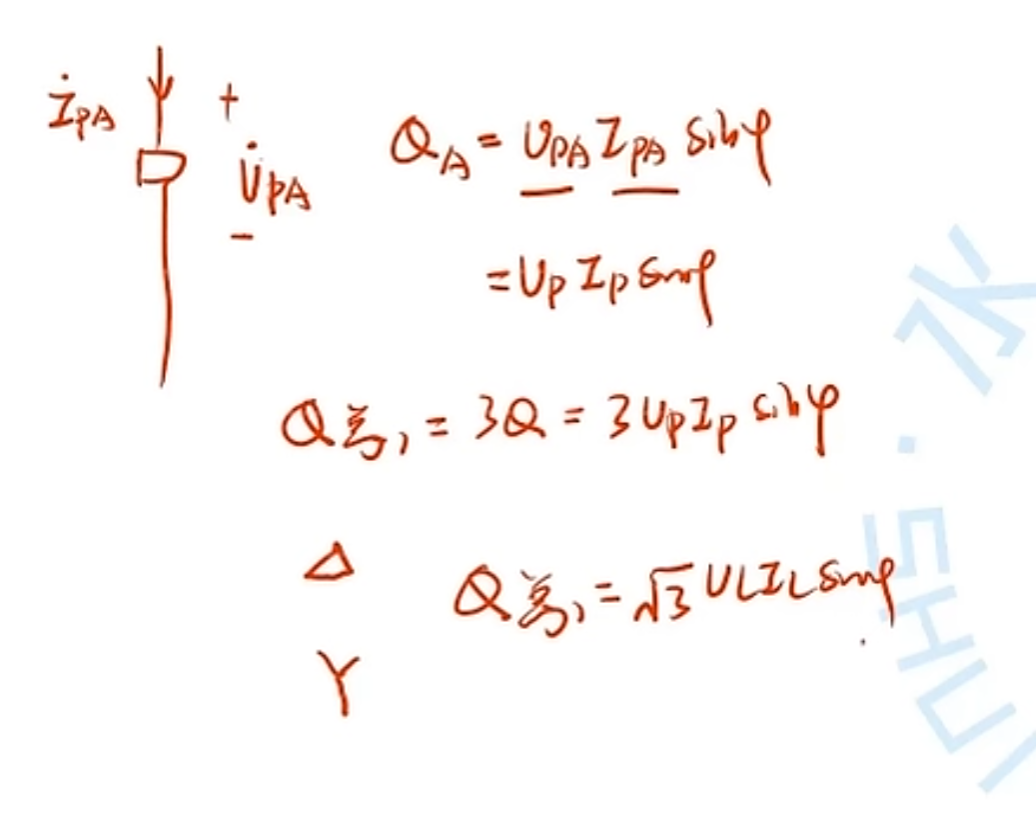 İPA
+
U̇PA
-
QA = UPA IPA sinφ
= UP IP sinφ
Q总 = 3Q = 3UP IP sinφ
△ Q总 = √3 UL IL sinφ
Y
水 · SHUI